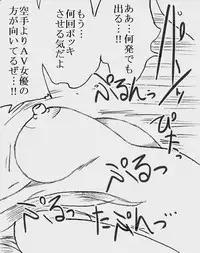 ああ…何発でも
出る…！！
もう…
何回ボッキ
させる気だよ
空手よりAV女優の
方が向いてるぜ…！！
ぷるんっっ
ぴたっ
ぷるっ
ぷるっ
～～たぷんっ